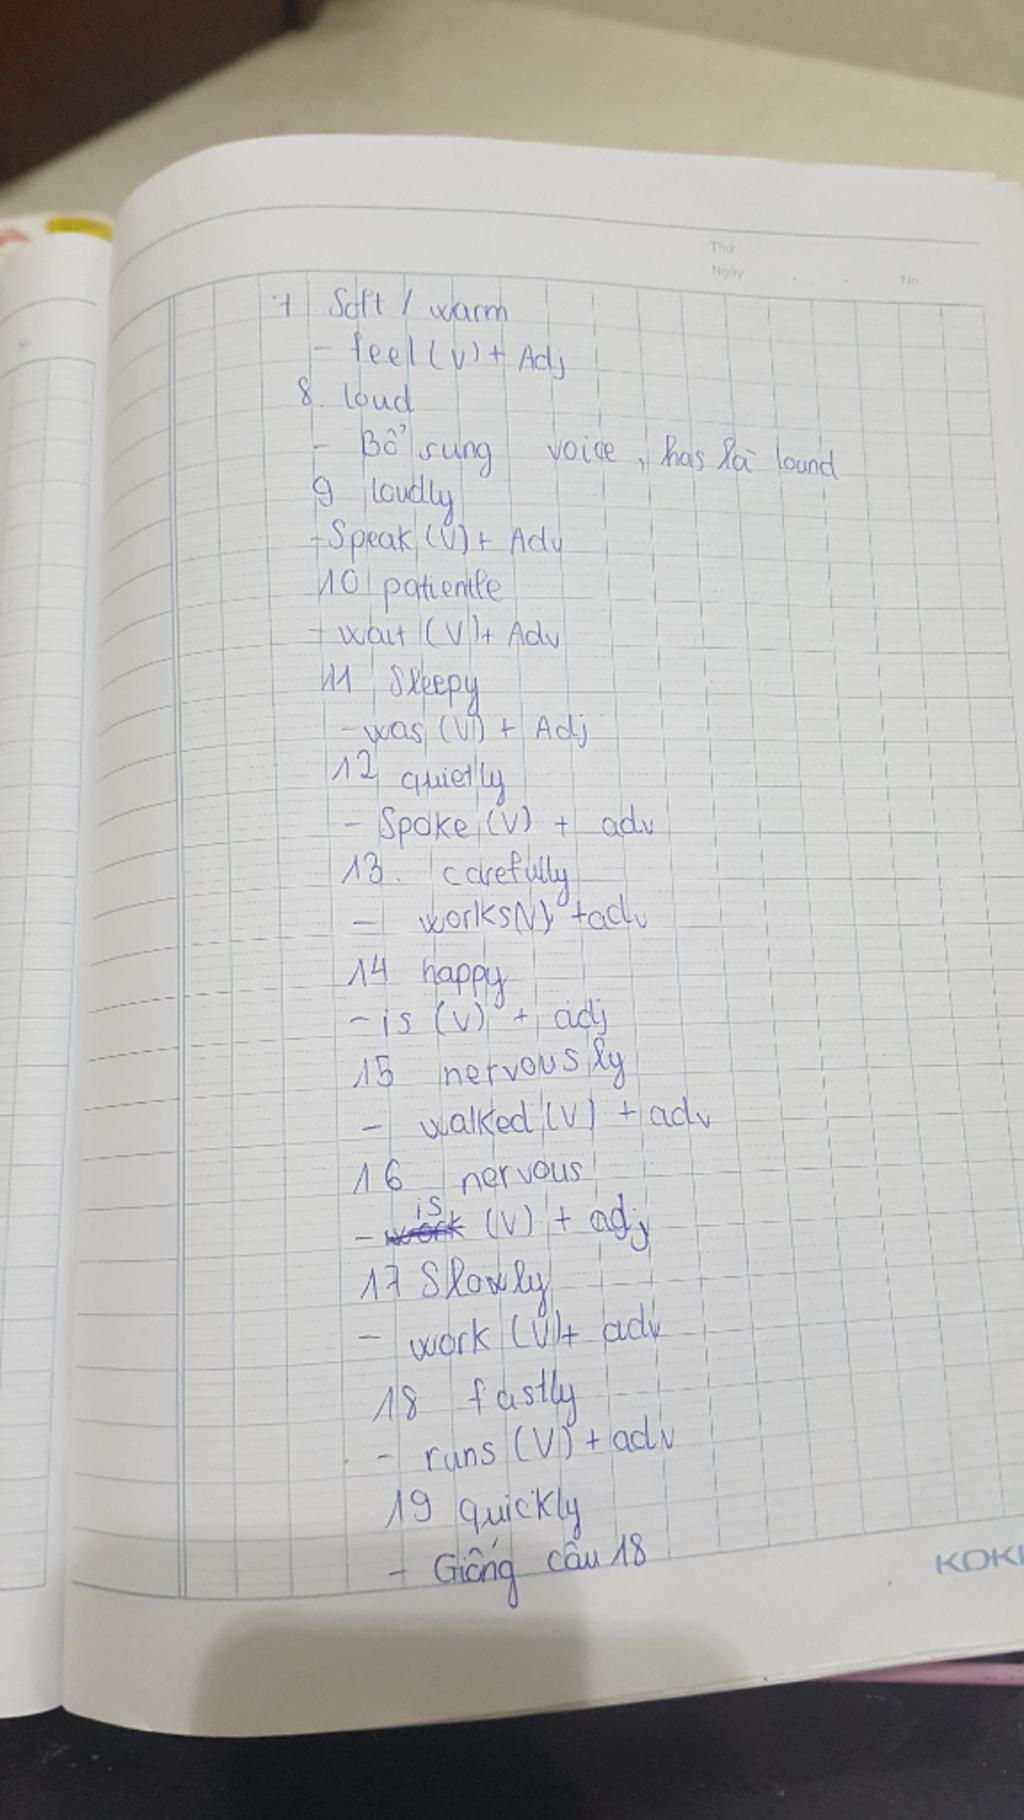 Thứ
Ngày . . No.
7 Soft / warm
- feel (V) + Adj
8. loud
- Bổ sung voice, has là lound
9 loudly
- Speak (V) + Adv
10 patientle
- wait (V) + Adv
11 Sleepy
- was (V) + Adj
12 quietly
- Spoke (V) + adv
13. carefully
- works(V) + adv
14 happy
- is (V) + adj
15 nervously
- walked (V) + adv
16 nervous
- is (V) + adj
17 Slowly
- work (V) + adv
18 fastly
- runs (V) + adv
19 quickly
- Giống câu 18